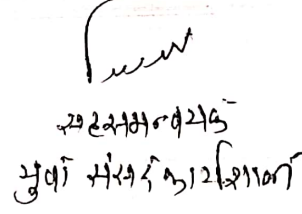 सहसमन्वयक
युवा संसद कार्यशाला